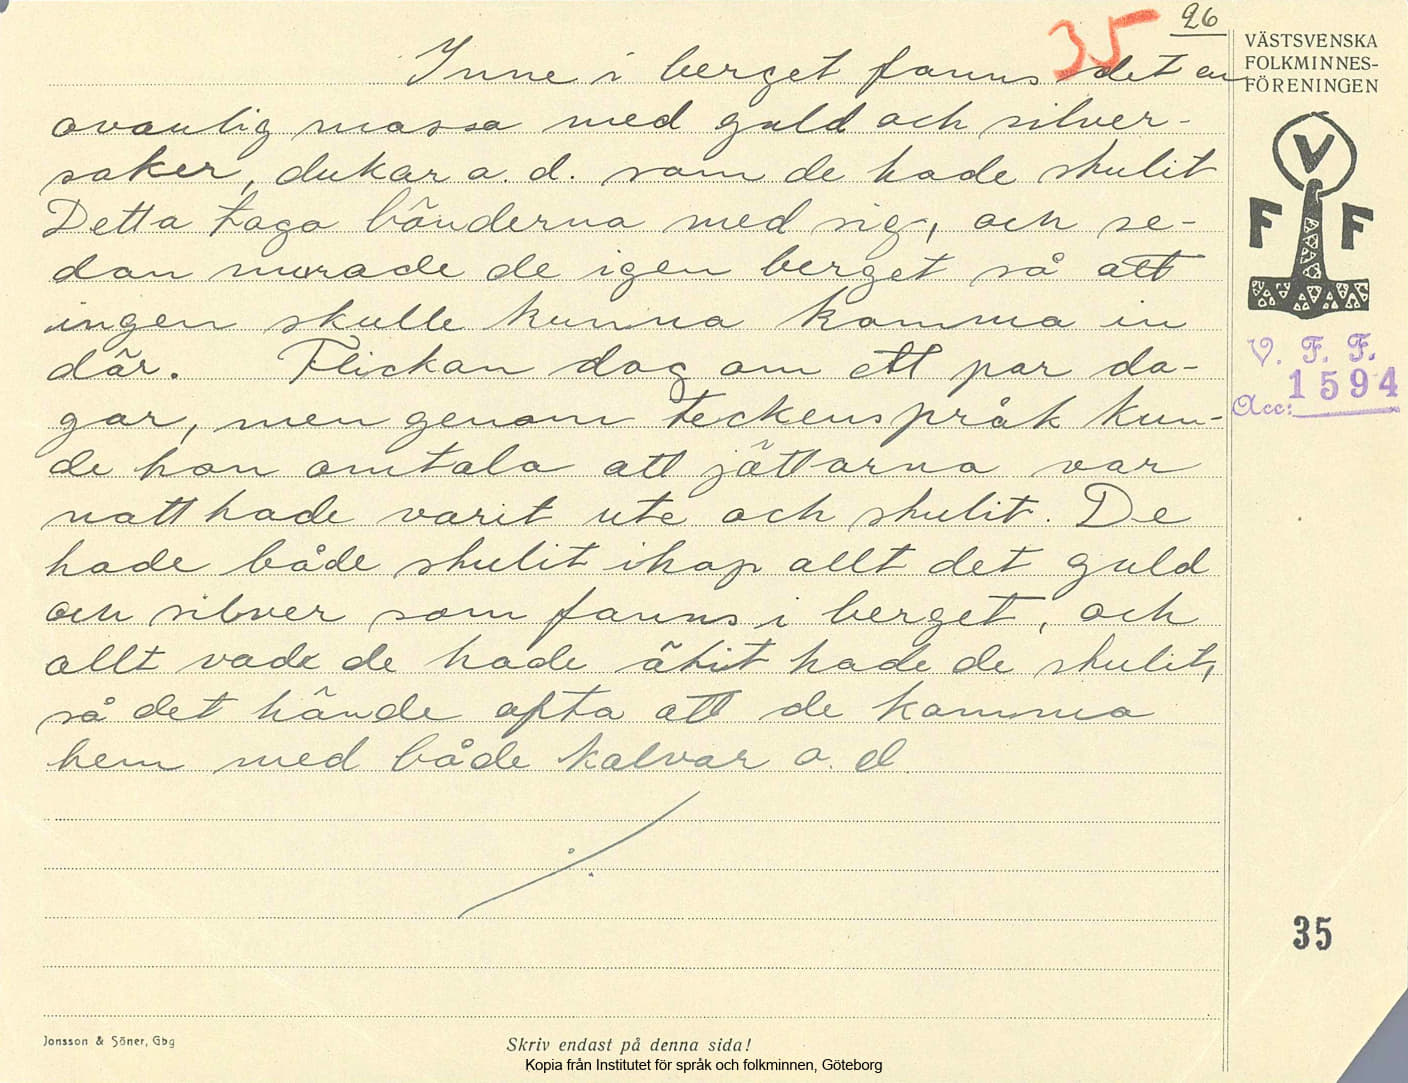 26
35
VÄSTSVENSKA
FOLKMINNES-
FÖRENINGEN
Inne i berget fanns det en
ovanlig massa med guld och silver-
saker, dukar o. d. som de hade stulit
Detta togo bönderna med sig, och se-
dan murade de igen berget så att
ingen skulle kunna komma in
där. Flickan dog om ett par da-
gar, men genom teckenspråk kun-
de hon omtala att jättarna var
natt hade varit ute och stulit. De
hade både stulit ihop allt det guld
och silver som fanns i berget, och
allt vade de hade ätit hade de stulit,
så det hände ofta att de komma
hem med både kalvar o. d.
V
F F
V. F. F.
Acc: 1594
35
Jonsson & Söner, Gbg
Skriv endast på denna sida!
Kopia från Institutet för språk och folkminnen, Göteborg